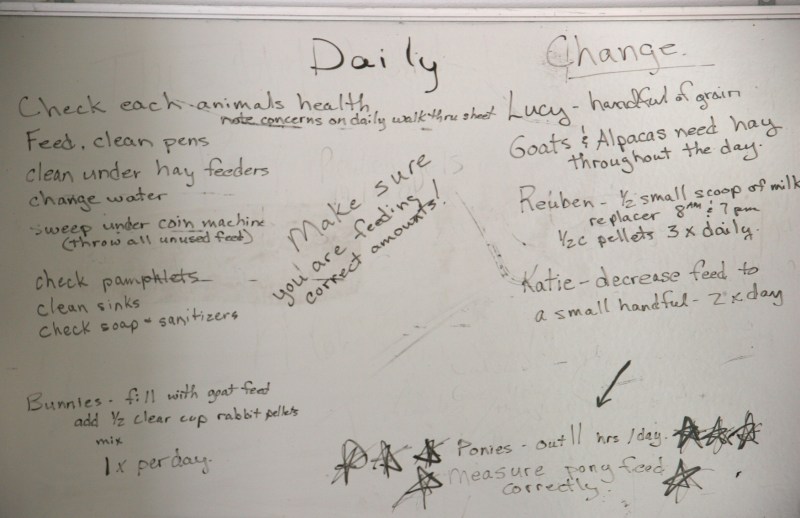 Daily
Check each animals health
note concerns on daily walk thru sheet
Feed, clean pens
clean under hay feeders
change water
sweep under coin machine
(throw all unused feed)
check pamphlets
clean sinks
check soap - sanitizers
Make sure
you are feeding
correct amounts!
Bunnies - fill with goat feed
add 1/2 clear cup rabbit pellets
mix
1 x per day.
Change.
Lucy - handful of grain
Goats & Alpacas need hay
throughout the day.
Reuben - 1/2 small scoop of milk
replacer 8am & 7pm
1/2 c pellets 3 x daily.
Katie - decrease feed to
a small handful - 2 x day
Ponies - out 11 hrs / day.
Measure pony feed
correctly.